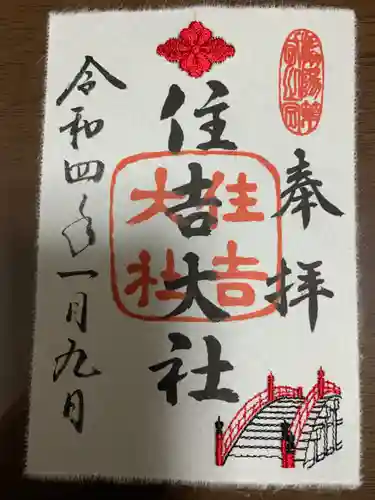 奉拝
住吉大社
住吉
大社
令和四年一月九日